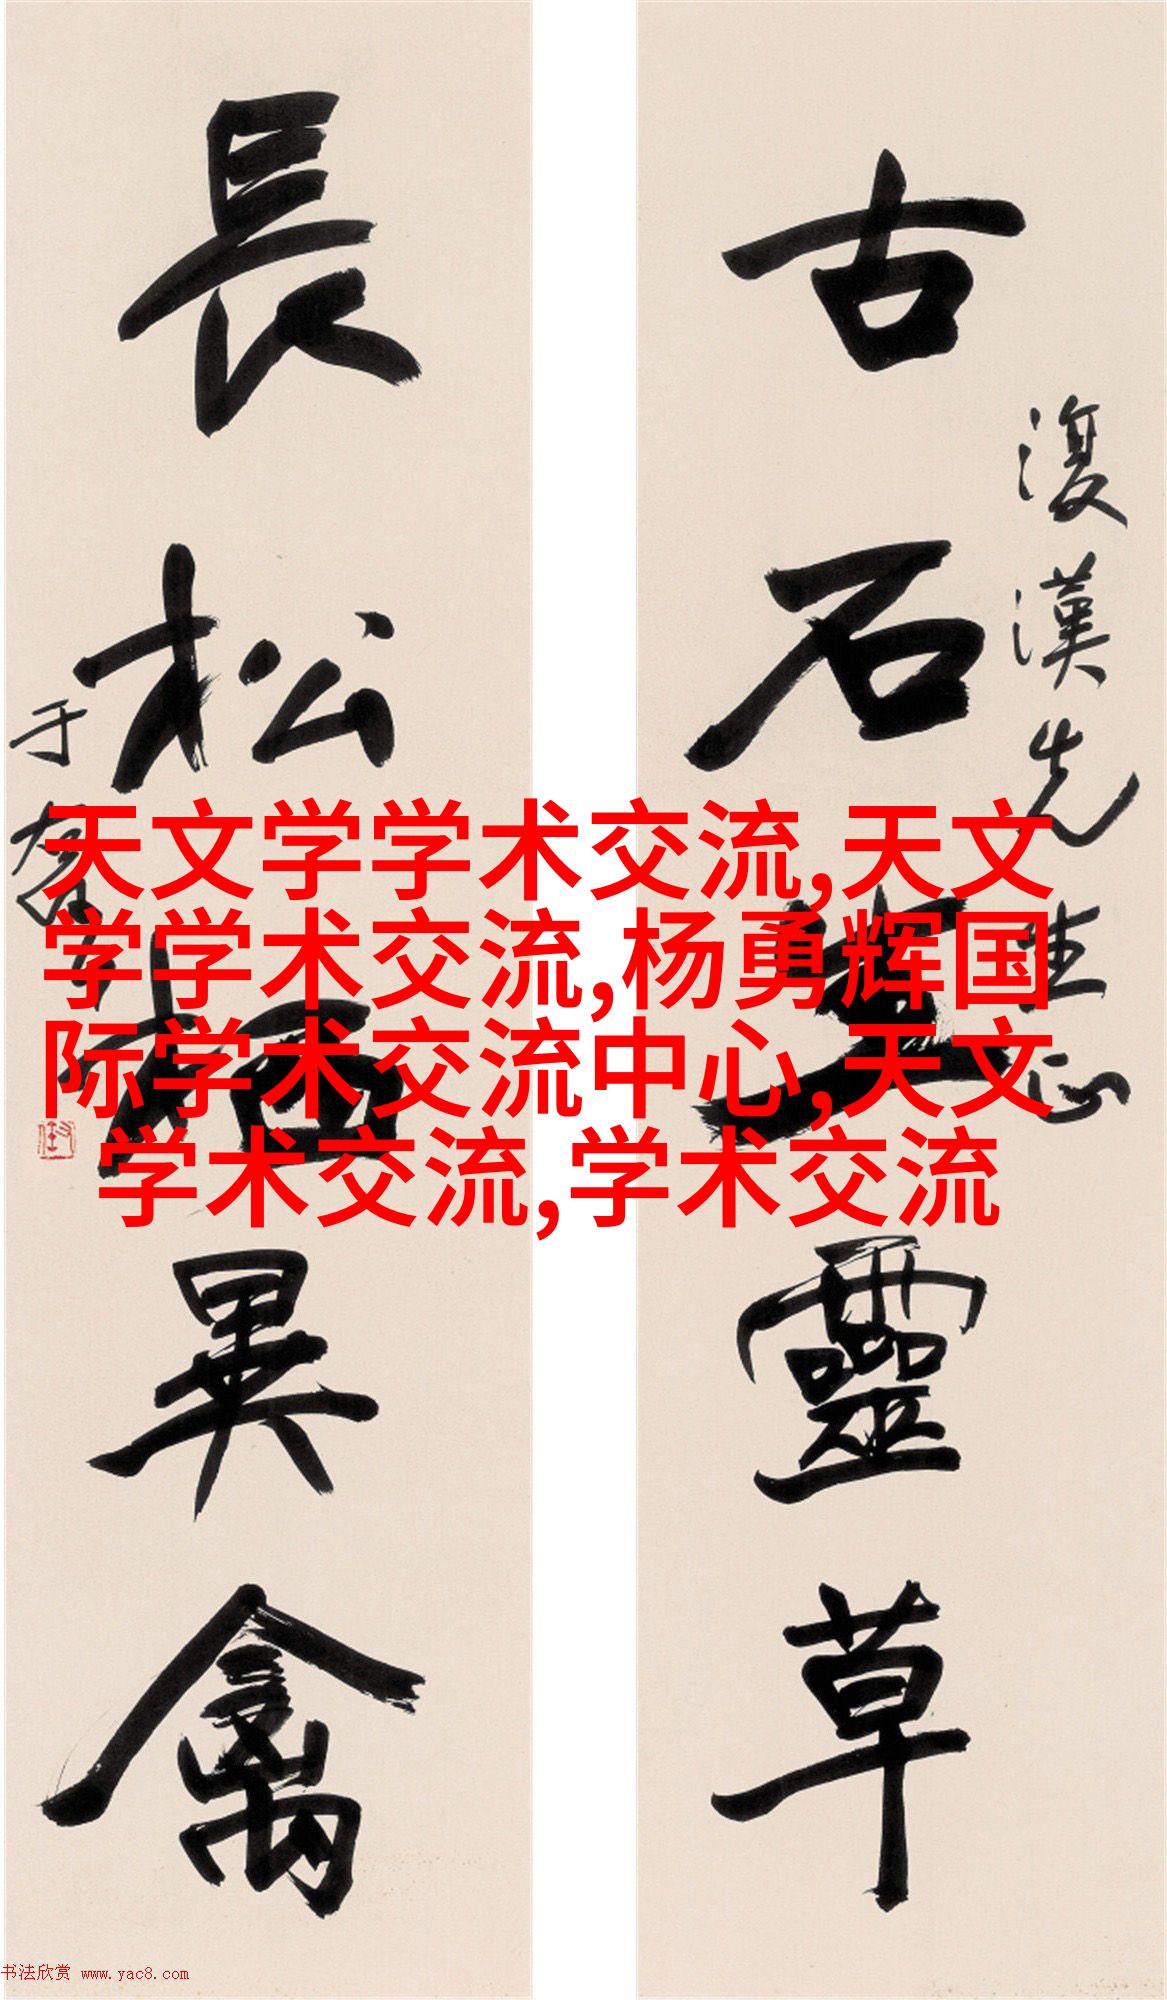 古石生靈草
復漢先生正
長松栖異禽
于右任
天文学学术交流,天文
学学术交流,杨勇辉国
际学术交流中心,天文
学术交流,学术交流
书法欣赏 www.yac8.com